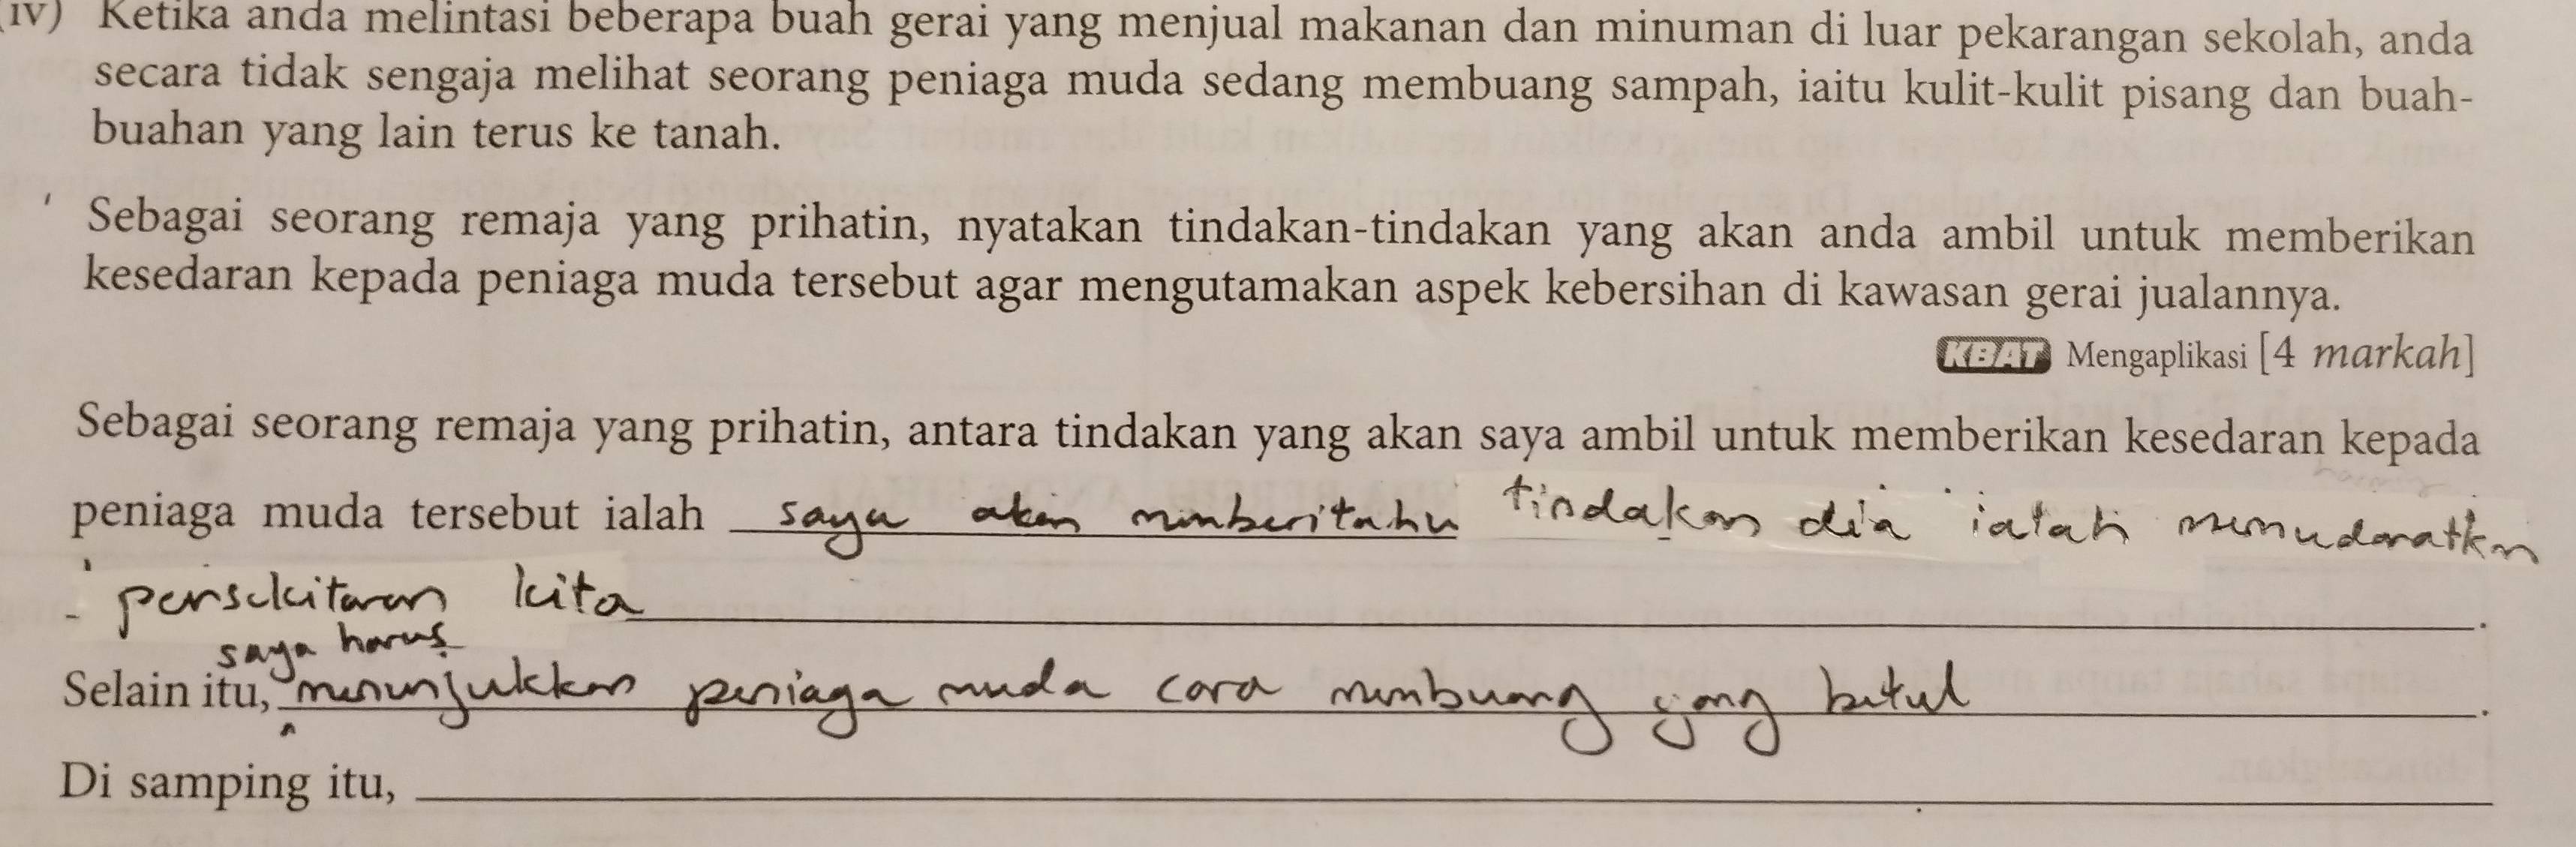 iv) Ketika anda melintasi beberapa buah gerai yang menjual makanan dan minuman di luar pekarangan sekolah, anda
secara tidak sengaja melihat seorang peniaga muda sedang membuang sampah, iaitu kulit-kulit pisang dan buah-
buahan yang lain terus ke tanah.
Sebagai seorang remaja yang prihatin, nyatakan tindakan-tindakan yang akan anda ambil untuk memberikan
kesedaran kepada peniaga muda tersebut agar mengutamakan aspek kebersihan di kawasan gerai jualannya.
KBAT Mengaplikasi [4 markah]
Sebagai seorang remaja yang prihatin, antara tindakan yang akan saya ambil untuk memberikan kesedaran kepada
peniaga muda tersebut ialah saya akan memberitahu tindakan dia ialah memudaratkan
persekitaran kita.
saya harus
Selain itu, menunjukkan peniaga muda cara membuang yang betul.
Di samping itu,